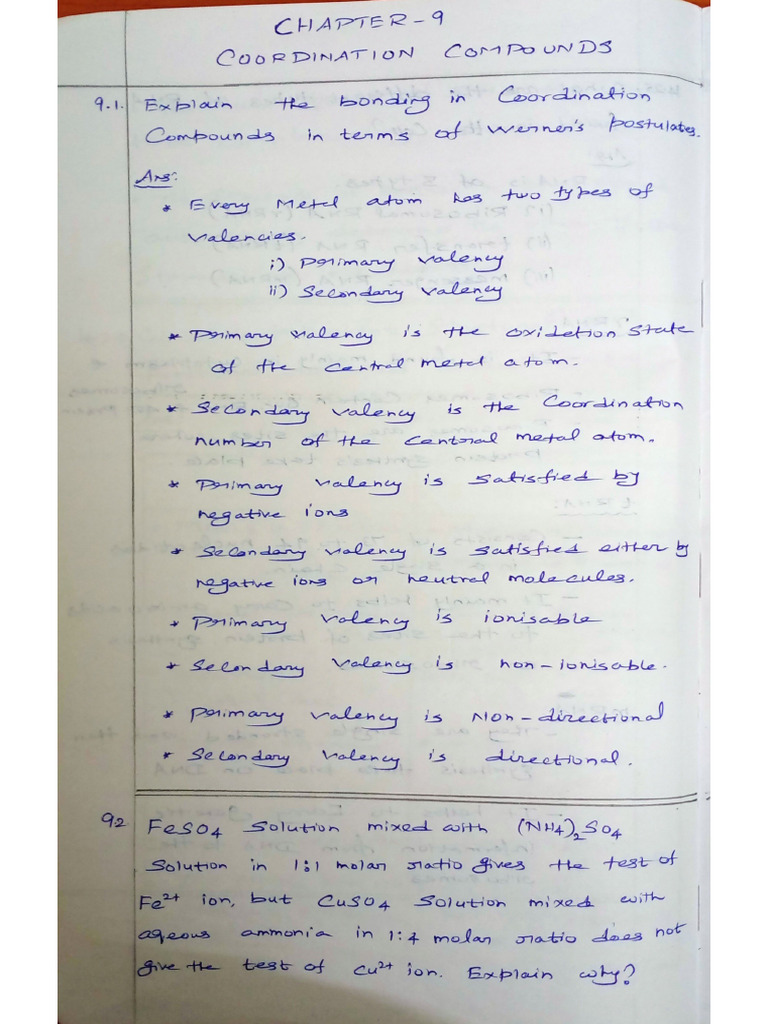 CHAPTER-9
COORDINATION COMPOUNDS
9.1. Explain the bonding in Coordination
Compounds in terms of Werner's postulates.
Ans:
* Every Metal atom has two types of
valencies.
i) Primary valency
ii) Secondary valency
* Primary valency is the oxidation state
of the central metal atom.
* Secondary valency is the Coordination
number of the central metal atom.
* Primary valency is satisfied by
negative ions
* Secondary valency is satisfied either by
negative ions or neutral molecules.
* Primary valency is ionisable
* Secondary valency is non-ionisable.
* Primary valency is Non-directional
* Secondary valency is directional.
9.2 FeSO4 Solution mixed with (NH4)2SO4
Solution in 1:1 molar ratio gives the test of
Fe2+ ion, but CuSO4 Solution mixed with
aqeous ammonia in 1:4 molar ratio does not
give the test of Cu2+ ion. Explain why?